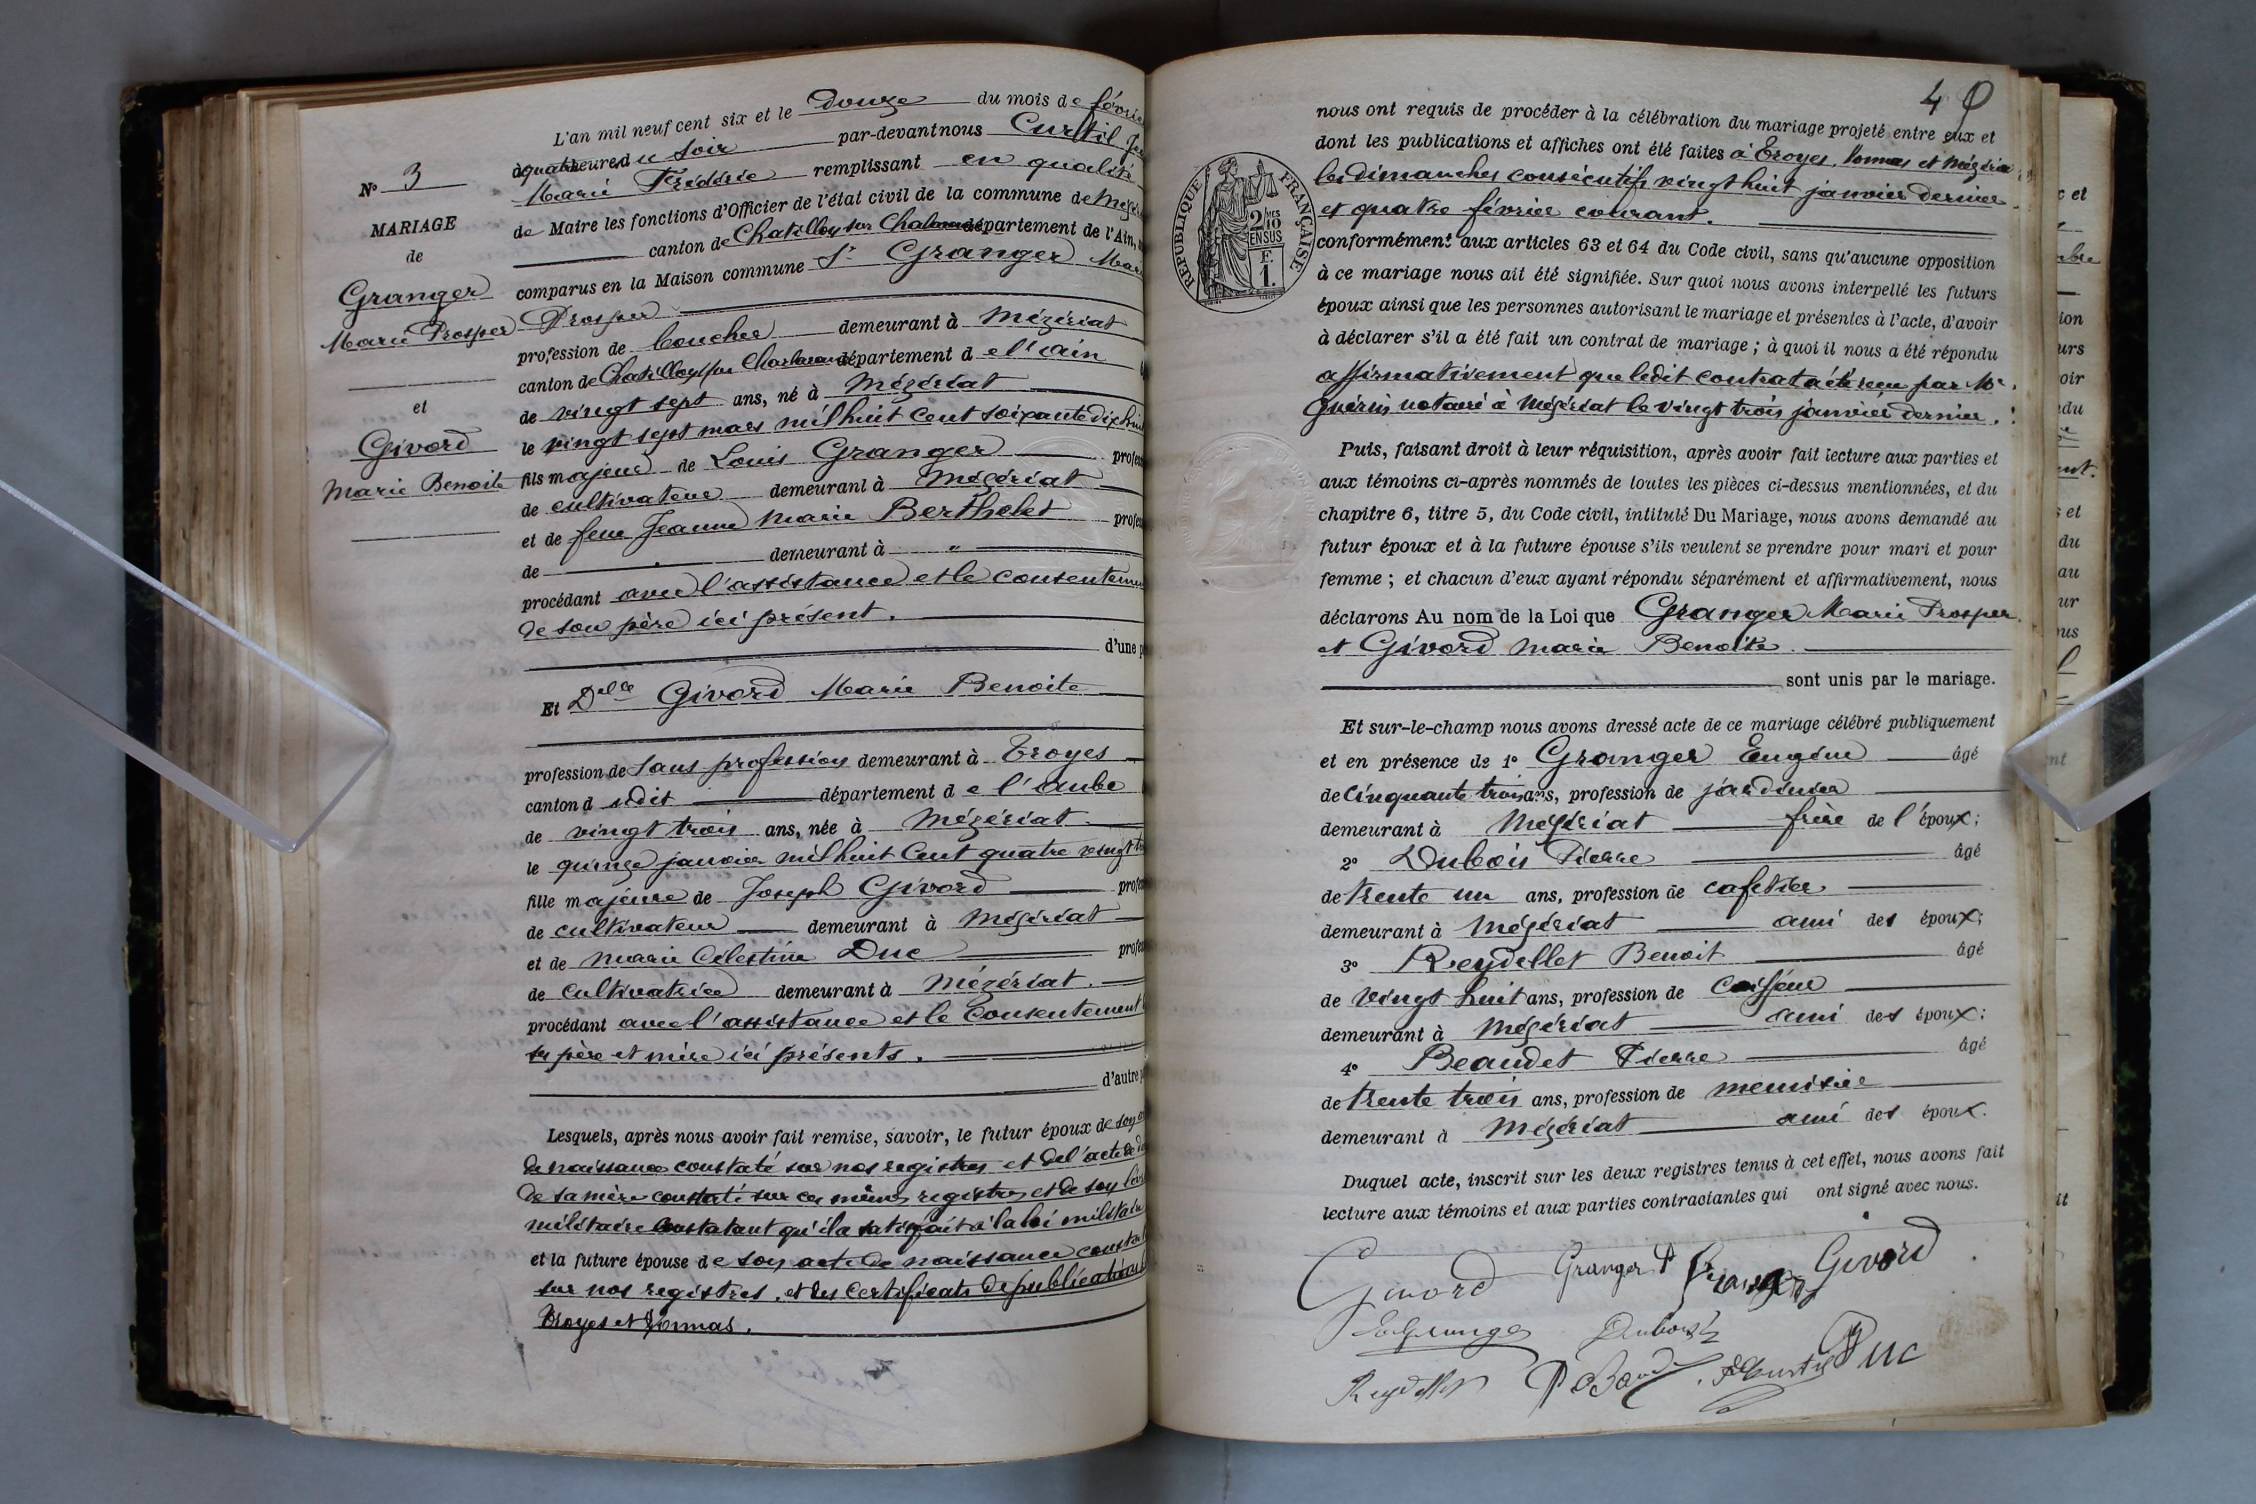 L'an mil neuf cent six et le douze du mois de février
à quatre heures du soir par-devant nous Curtil
Marie Frédéric remplissant en qualité
de Maire les fonctions d'Officier de l'état civil de la commune de
canton de Chatillon sur Chalaronne département de l'Ain,
comparus en la Maison commune Sr Granger
Prosper
profession de boucher demeurant à Mézériat
canton de Chatillon sur Chalaronne département de l'ain
de vingt sept ans, né à Mézériat
le vingt sept mars mil huit cent soixante dix huit
fils majeur de Louis Granger
de cultivateur demeurant à Mézériat
et de feue Jeanne Marie Berthelet
de demeurant à "
procédant avec l'assistance et le consentement
de son père ici présent.
d'une
Et Delle Givord Marie Benoite
profession de sans profession demeurant à Troyes
canton du dit département de l'aube
de vingt trois ans, née à Mézériat
le quinze janvier mil huit cent quatre vingt
fille majeure de Joseph Givord
de cultivateur demeurant à Mézériat
et de Marie Célestine Duc
de cultivatrice demeurant à Mézériat.
procédant avec l'assistance et le consentement
père et mère ici présents.
d'autre
Lesquels, après nous avoir fait remise, savoir, le futur époux de son
de naissance constaté sur nos registres et de l'acte de
de sa mère constaté sur ces mêmes registres et de son
militaire constatant qu'il a satisfait à la loi militaire
et la future épouse de son acte de naissance
sur nos registres. et des certificats de publications
Troyes et Vonnas.
N° 3
MARIAGE
de
Granger
Marie Prosper
et
Givord
Marie Benoite
4
nous ont requis de procéder à la célébration du mariage projeté entre eux et
dont les publications et affiches ont été faites à Troyes, Vonnas et Mézériat
les dimanches consécutifs vingt huit janvier dernier
et quatre février courant.
conformément aux articles 63 et 64 du Code civil, sans qu'aucune opposition
à ce mariage nous ait été signifiée. Sur quoi nous avons interpellé les futurs
époux ainsi que les personnes autorisant le mariage et présentes à l'acte, d'avoir
à déclarer s'il a été fait un contrat de mariage ; à quoi il nous a été répondu
affirmativement que ledit contrat a été reçu par Me
Guérin notaire à Mézériat le vingt trois janvier dernier.
Puis, faisant droit à leur réquisition, après avoir fait lecture aux parties et
aux témoins ci-après nommés de toutes les pièces ci-dessus mentionnées, et du
chapitre 6, titre 5, du Code civil, intitulé Du Mariage, nous avons demandé au
futur époux et à la future épouse s'ils veulent se prendre pour mari et pour
femme ; et chacun d'eux ayant répondu séparément et affirmativement, nous
déclarons Au nom de la Loi que Granger Marie Prosper
et Givord Marie Benoite.
sont unis par le mariage.
Et sur-le-champ nous avons dressé acte de ce mariage célébré publiquement
et en présence de 1° Granger Eugène âgé
de cinquante trois ans, profession de jardinier
demeurant à Mézériat frère de l'époux;
2° Dubois Pierre âgé
de trente un ans, profession de cafetier
demeurant à Mézériat ami des époux;
3° Reydellet Benoit âgé
de vingt huit ans, profession de coiffeur
demeurant à Mézériat ami des époux;
4° Beaudet Pierre âgé
de trente trois ans, profession de menuisier
demeurant à Mézériat ami des époux.
Duquel acte, inscrit sur les deux registres tenus à cet effet, nous avons fait
lecture aux témoins et aux parties contractantes qui ont signé avec nous.
Givord Granger P Granger Givord
Dubois
Reydellet Duc
RÉPUBLIQUE FRANÇAISE
2/10
EN SUS
F.
1.